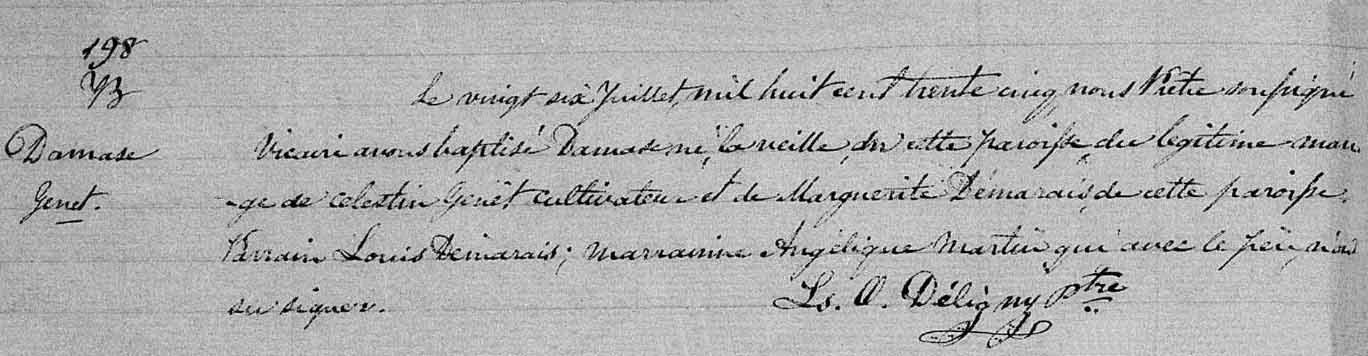 198
B
Le vingt six Juillet, mil huit cent trente cinq nous Prêtre soussigné
Damase
Vicaire avons baptisé Damase né, la veille, en cette paroisse, du legitime maria
Genet.
-ge de Celestin Genêt cultivateur et de Marguerite Démarais, de cette paroisse.
Parrain Louis Demarais; marrainne Angélique Martin qui avec le père, n'ont
su signer.
Ls. O. Déligny ptre